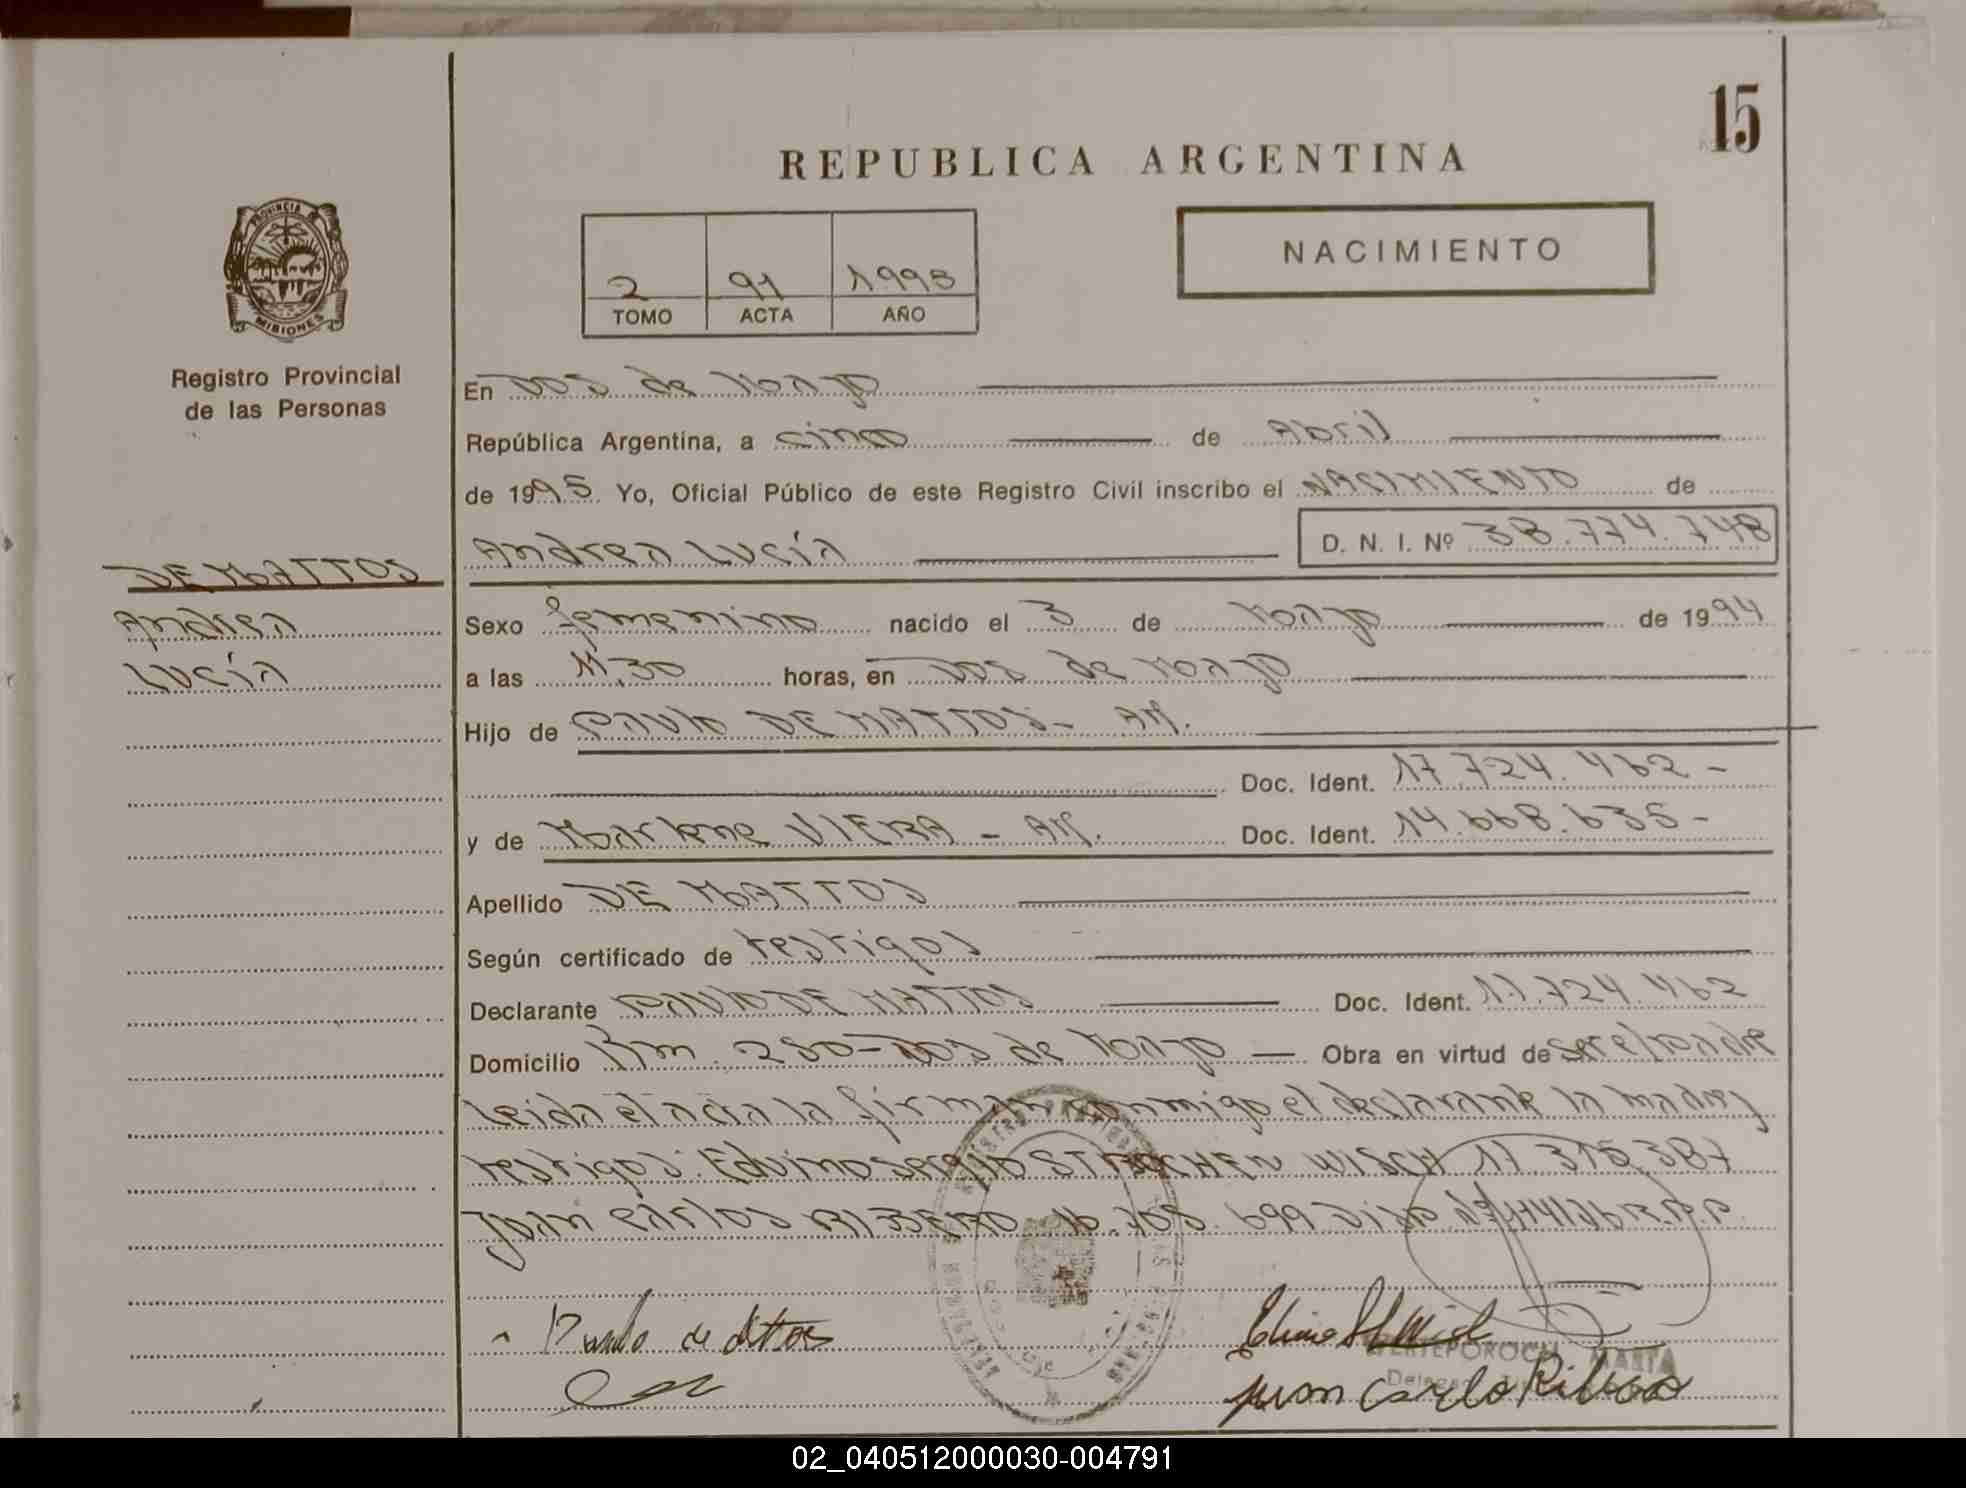 15
REPUBLICA ARGENTINA
PROVINCIA DE
MISIONES
2 91 1995
TOMO ACTA AÑO
NACIMIENTO
Registro Provincial
de las Personas
En Dos de Mayo
República Argentina, a cinco de Abril
de 1995 Yo, Oficial Público de este Registro Civil inscribo el NACIMIENTO de
Andrea Lucía D. N. I. Nº 38.774.748
DE MATTOS
Andrea
Lucía
Sexo femenino nacido el 3 de Mayo de 1994
a las 11,30 horas, en Dos de Mayo
Hijo de Paulo DE MATTOS - AR.
Doc. Ident. 17.724.462-
y de Marlene VIERA - AR. Doc. Ident. 14.668.635-
Apellido DE MATTOS
Según certificado de testigos
Declarante Paulo DE MATTOS Doc. Ident. 17.724.462
Domicilio Km 250 - Dos de Mayo — Obra en virtud de ser el padre
leida el acta la firman conmigo el declarante la madre y
testigos: Edvino Sergio 17.315.387
Juan Carlos RIBEIRO 16.708.699 R.P.P.
Paulo de Mattos
MARTA
Juan Carlo Ribeiro
02_040512000030-004791